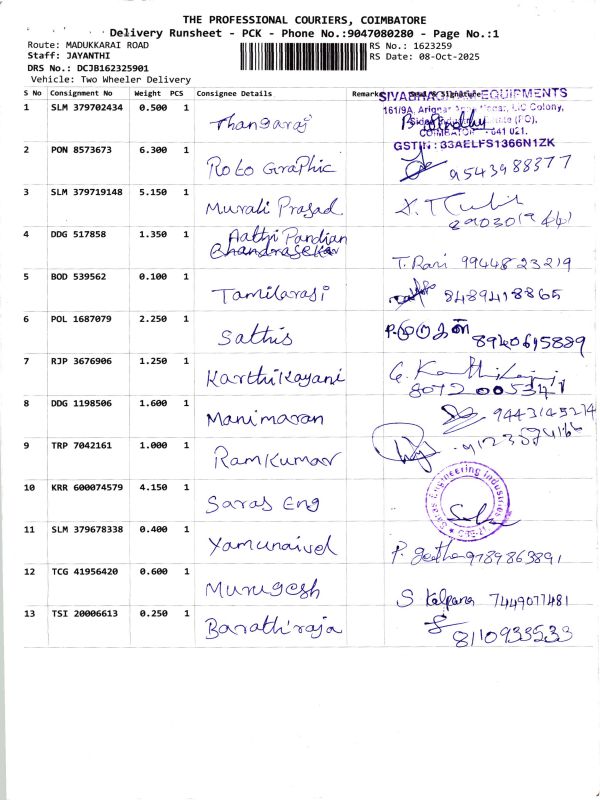 THE PROFESSIONAL COURIERS, COIMBATORE
Delivery Runsheet - PCK - Phone No.:9047080280 - Page No.:1
Route: MADUKKARAI ROAD RS No.: 1623259
Staff: JAYANTHI RS Date: 08-Oct-2025
DRS No.: DCJB162325901
Vehicle: Two Wheeler Delivery
S No Consignment No Weight PCS Consignee Details Remark Seal & Signature
SIVABHAGHYA EQUIPMENTS
161/9A, Arignar Anna Nagar, LIC Colony,
COIMBATORE - 641 021.
GSTIN : 33AELFS1366N1ZK
1 SLM 379702434 0.500 1 Thangaraj
2 PON 8573673 6.300 1 Roto Graphic 9543988377
3 SLM 379719148 5.150 1 Murali Prasad
4 DDG 517858 1.350 1 Aathi Pandian
Chandrasekar T. Rani 9944823219
5 BOD 539562 0.100 1 Tamilarasi 8489418865
6 POL 1687079 2.250 1 Sathis P.முருகன் 8940615889
7 RJP 3676906 1.250 1 Karthikayani
8072005341
8 DDG 1198506 1.600 1 Manimaran 9443145274
9 TRP 7042161 1.000 1 Ramkumar
10 KRR 600074579 4.150 1 Saras Eng
Saras Engineering Industries
CBE-21
11 SLM 379678338 0.400 1 Yamunaivel P. Geetha 9789863891
12 TCG 41956420 0.600 1 Murugesh S Kalpana 7449077481
13 TSI 20006613 0.250 1 Barathiraja 8110933533